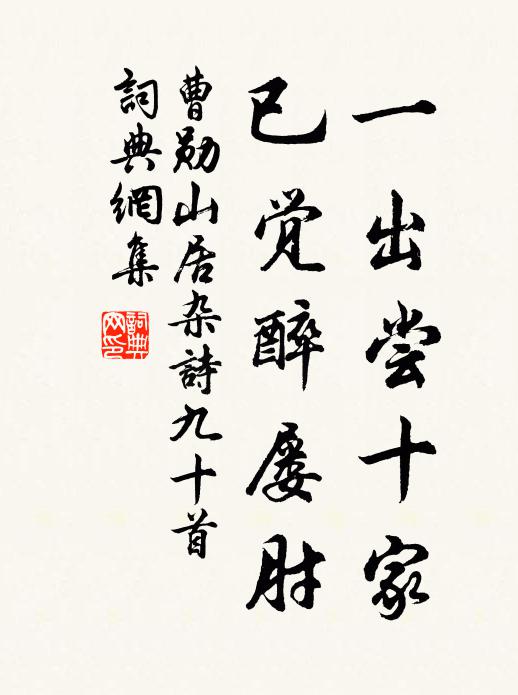 一出尝十家
已觉醉屡肘
曹勋山居杂詩九十首
詞典網集
詞典網印